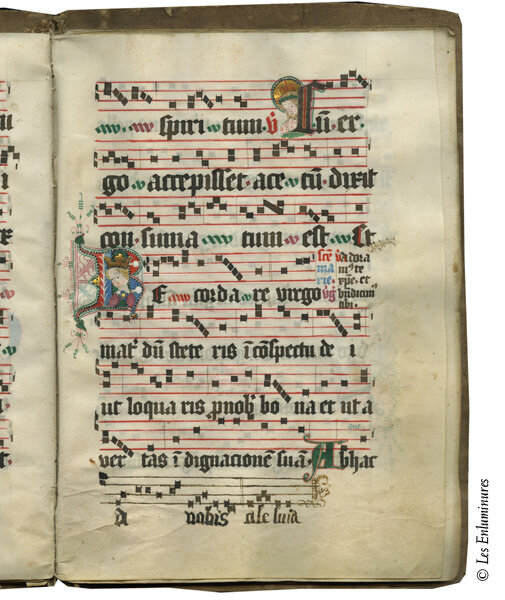 spiri tum · V Cũ er
go accepisset ace tũ dixit
con suma tum est · Et
Re corda re virgo
mať dũ stete ris ĩ cõspectu de i
ut loqua ris p nob̃ bo na et ut a
ver tas ĩ dignacionẽ suã · Ab hac
a nobis ale luia
© Les Enluminures